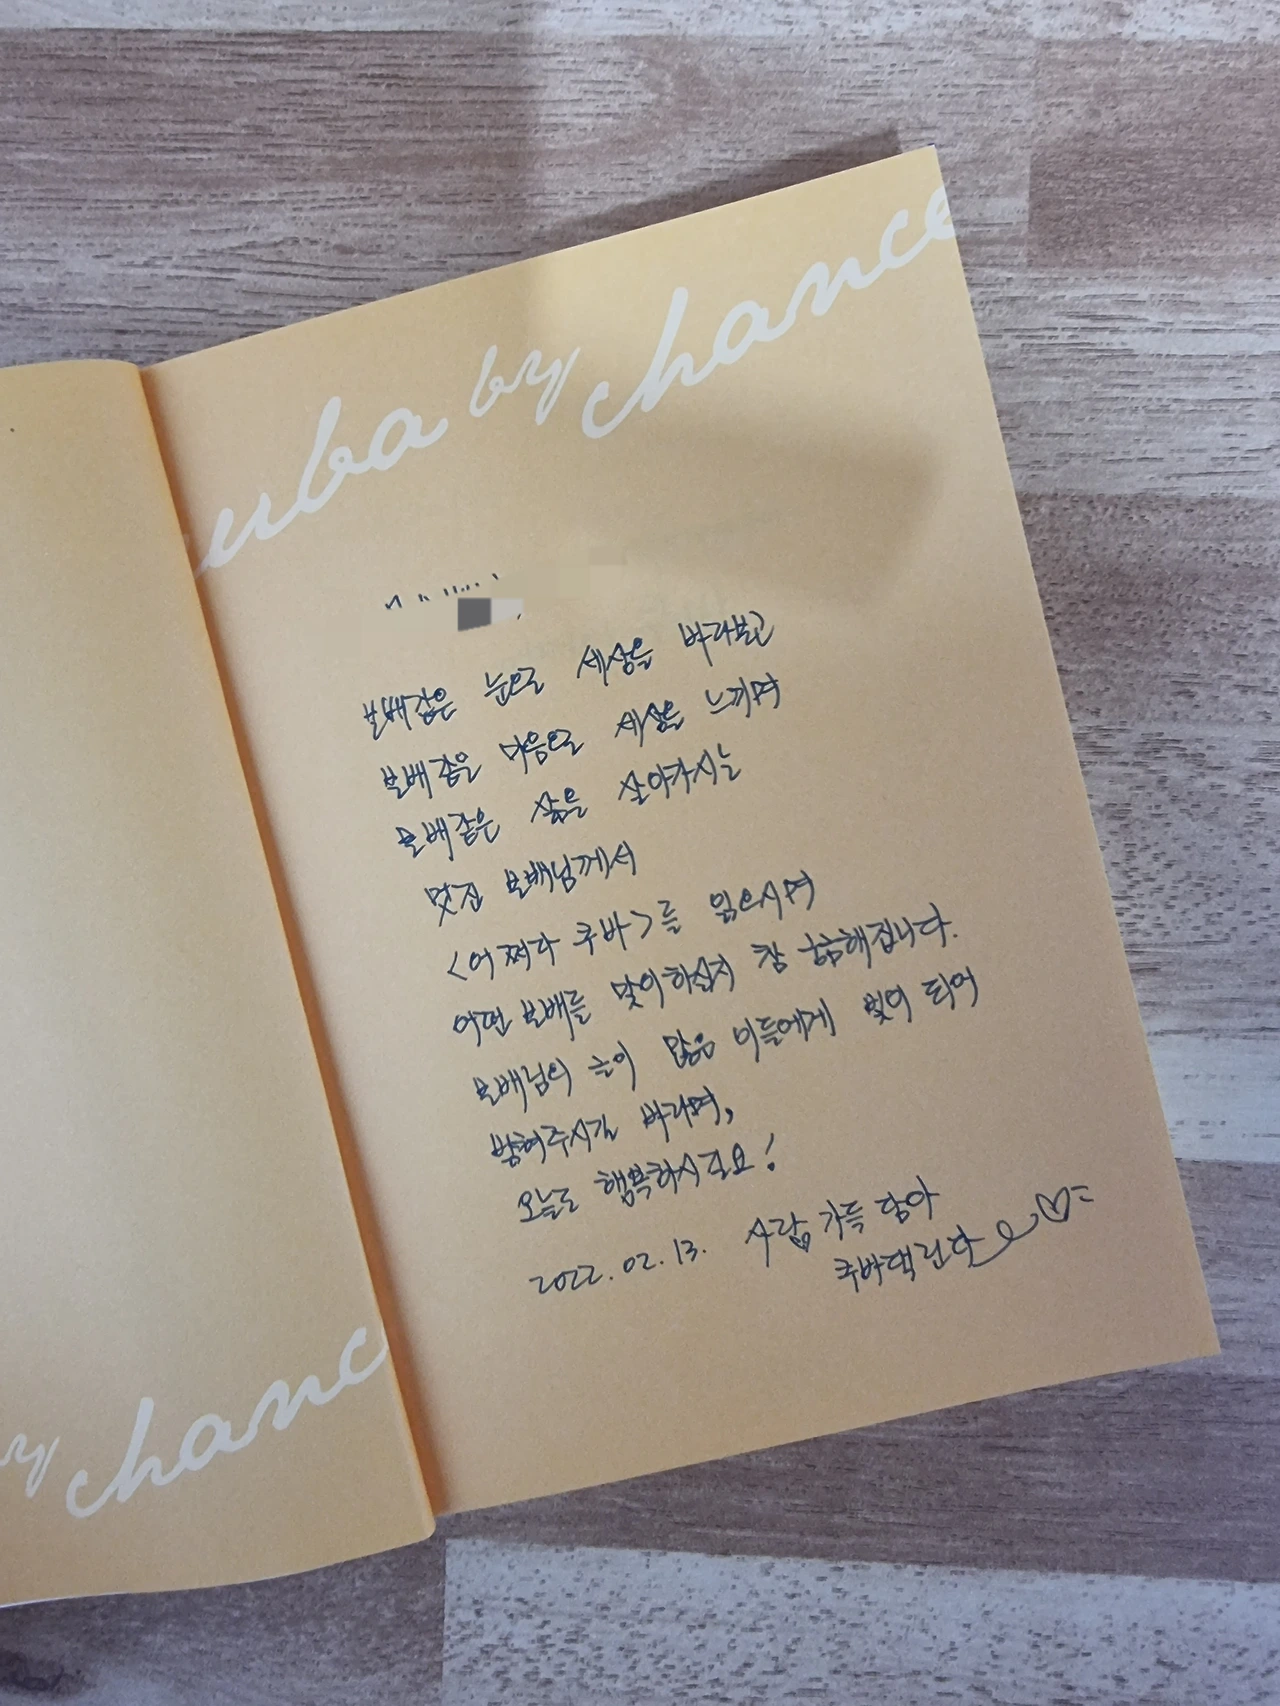 uba by chance
보배같은 눈으로 세상을 바라보고
보배같은 마음으로 세상을 느끼며
보배같은 삶을 살아가시는
멋진 보배님께서
<어쩌다 쿠바>를 읽으시며
어떤 보배를 맞이하실지 참 궁금해집니다.
보배님의 글이 많은 이들에게 빛이 되어
밝혀주시길 바라며,
오늘도 행복하시길요!
2022.02.13. 사랑 가득 담아
쿠바댁 린다
by chanc